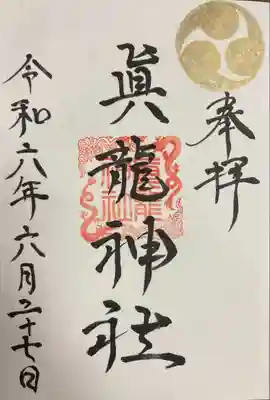 奉拝
眞龍神社
令和六年六月二十七日